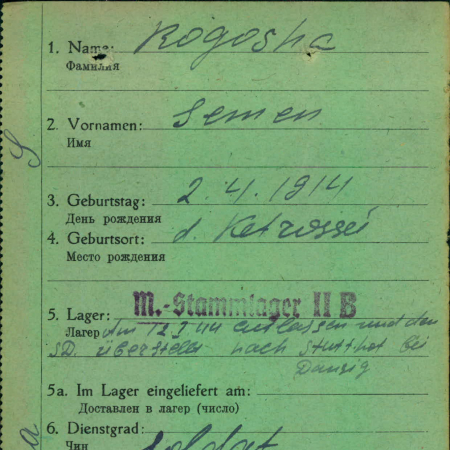 1. Name: Rogosha
Фамилия
2. Vornamen: Semen
Имя
3. Geburtstag: 2.4.1914
День рождения
4. Geburtsort: d. Ketrossi
Место рождения
5. Lager: M.-Stammlager II B
Лагерь Am 12.9.44 entlassen und dem
SD. überstellt nach Stutthof bei
Danzig
5a. Im Lager eingeliefert am:
Доставлен в лагер (число)
6. Dienstgrad: Soldat
Чин